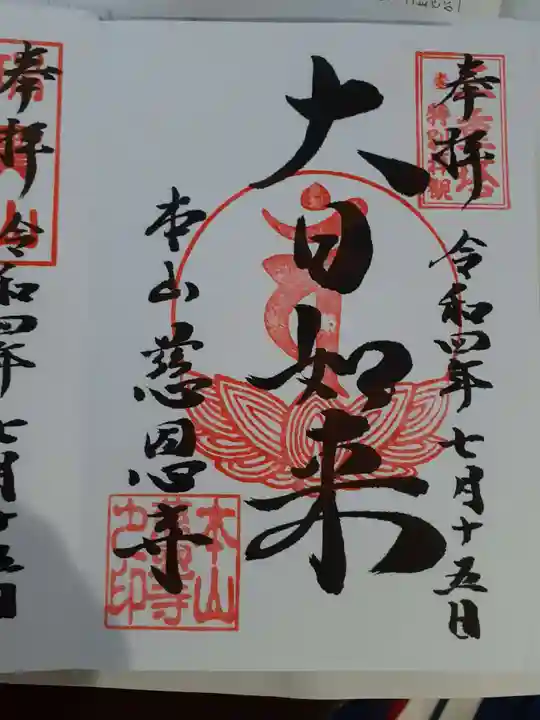 奉拝
令和四年七月十五日
大日如来
本山慈恩寺
本山
慈恩寺
之印
奉拝
令和四年七月十五日